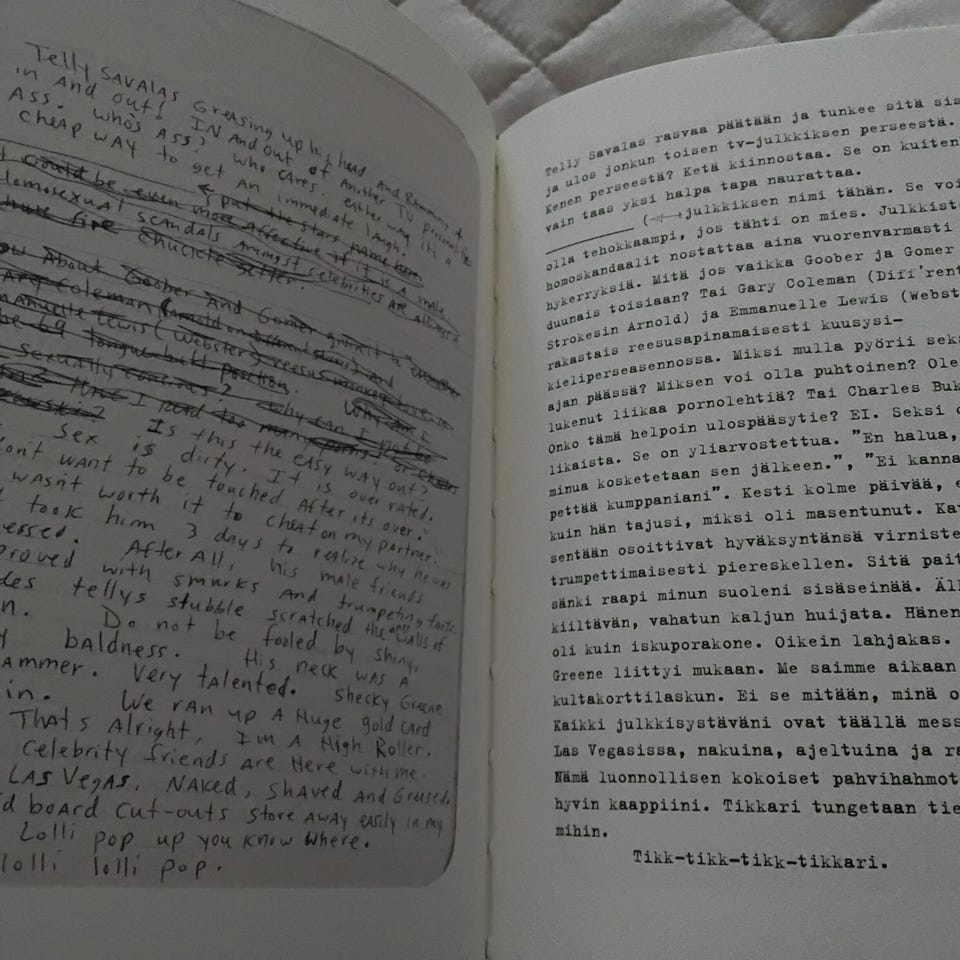 Telly SAVALAS Greasing up his head And Ramming it
in And out! IN And Out of Another TV
Ass. who's Ass? who cares. either way its a
cheap WAY to get AN immediate laugh.
put the stars name here
would be even more Affective if it is a male
Homosexual scandals Amongst celebrities are always
fire chuckle seller.
About Goober And Gomer
Coleman (Arnold on
Lewis (Websters) reesus
be 69 tongue butt position.
Sexually ? Why can I not be
I read too many
? Is this the easy way out?
Sex is dirty. It is over rated.
want to be touched After its over."
wasn't worth it to cheat on my partner.
took him 3 days to realize why he was
After All, his male friends
with smurks and trumpeting farts
tellys stubble scratched the walls of
Do not be fooled by shiny,
baldness. His neck was A
Very Talented. Shecky Greene
in. We ran up A Huge gold card
That's Alright, I'm A High Roller.
celebrity friends are Here with me
LAS Vegas, NAKED, shaved And Greased.
board cut-outs store AWAY easily in my
Lolli pop up you know where.
lolli lolli pop.
Telly Savalas rasvaa päätään ja tunkee sitä sis
ja ulos jonkun toisen tv-julkkiksen perseestä.
Kenen perseestä? Ketä kiinnostaa. Se on kuiten
vain taas yksi halpa tapa naurattaa.
(←julkkiksen nimi tähän. Se voi
olla tehokkaampi, jos tähti on mies. Julkkist
homoskandaalit nostattaa aina vuorenvarmasti
hykerryksiä. Mitä jos vaikka Goober ja Gomer
duunais toisiaan? Tai Gary Coleman (Diff'rent
Strokesin Arnold) ja Emmanuelle Lewis (Webst
rakastais reesusapinamaisesti kuusysi-
kieliperseasennossa. Miksi mulla pyörii seks
ajan päässä? Miksen voi olla puhtoinen? Ole
lukenut liikaa pornolehtiä? Tai Charles Buk
Onko tämä helpoin ulospääsytie? EI. Seksi o
likaista. Se on yliarvostettua. "En halua,
minua kosketetaan sen jälkeen.", "Ei kanna
pettää kumppaniani". Kesti kolme päivää, e
kuin hän tajusi, miksi oli masentunut. Kav
sentään osoittivat hyväksyntänsä virniste
trumpettimaisesti piereskellen. Sitä pait
sänki raapi minun suoleni sisäseinää. Äl
kiiltävän, vahatun kaljun huijata. Hänen
oli kuin iskuporakone. Oikein lahjakas.
Greene liittyi mukaan. Me saimme aikaan
kultakorttilaskun. Ei se mitään, minä o
Kaikki julkkisystäväni ovat täällä mess
Las Vegasissa, nakuina, ajeltuina ja ra
Nämä luonnollisen kokoiset pahvihahmot
hyvin kaappiini. Tikkari tungetaan tie
mihin.
Tikk-tikk-tikk-tikkari.